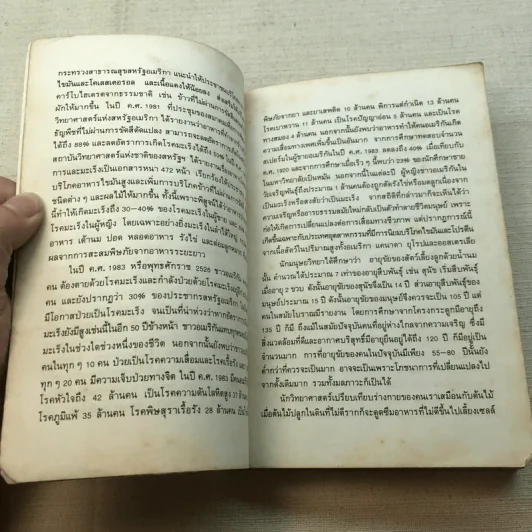 กระทรวงสาธารณสุขสหรัฐอเมริกา แนะนำให้ประชาชนบริโภค
ไขมันและโคเลสเตอรอล และเนื้อแดงให้น้อยลง
คาร์โบไฮเดรตจากธรรมชาติ เช่น ข้าวที่ไม่ผ่านการ
ผักให้มากขึ้น ในปี ค.ศ. 1981 ที่ประชุมของสมาคม
วิทยาศาสตร์แห่งสหรัฐอเมริกา ได้รายงานว่าอาหาร
ธัญพืชที่ไม่ผ่านการขัดสีดัดแปลง สามารถจะลด
ได้ถึง 88% และลดอัตราการเกิดโรคมะเร็งได้ถึง 50%
สถาบันวิทยาศาสตร์แห่งชาติของสหรัฐ ได้รายงาน
และการมะเร็งเป็นเอกสารหนา 472 หน้า เรียกร้องให้
บริโภคอาหารไขมันสูงและเพิ่มการบริโภคข้าวที่ไม่ผ่าน
ชนิดต่าง ๆ และผลไม้ให้มากขึ้น ทั้งนี้เพราะพิสูจน์ได้ว่า
นี้ทำให้เกิดมะเร็งถึง 30—40% ของโรคมะเร็งในผู้ชาย
โรคมะเร็งในผู้หญิง โดยเฉพาะอย่างยิ่งมะเร็งในลำไส้
อาหาร เต้านม ปอด หลอดอาหาร รังไข่ และต่อมลูกหมาก
ผลจากการสะสมพิษภัยจากอาหารระยะยาว
ในปี ค.ศ. 1983 หรือพุทธศักราช 2526 ชาวอเมริกัน
คน ต้องตายด้วยโรคมะเร็งและกำลังป่วยด้วยโรคมะเร็งอยู่
คน และยังปรากฏว่า 30% ของประชากรสหรัฐอเมริกา
มีโอกาสป่วยเป็นโรคมะเร็ง จนเป็นที่น่าห่วงว่าหากอัตรา
มะเร็งยังมีสูงเช่นนี้ในอีก 50 ปีข้างหน้า ชาวอเมริกันแทบทุกคน
มะเร็งในช่วงใดช่วงหนึ่งของชีวิต นอกจากนั้นยังพบว่า
คนในทุก ๆ 10 คน ป่วยเป็นโรคความเสื่อมและโรคเรื้อรัง
ทุก ๆ 20 คน มีความเจ็บป่วยทางจิต ในปี ค.ศ. 1983 มีคน
โรคหัวใจถึง 42 ล้านคน เป็นโรคความดันโลหิตสูง 37 ล้าน
โรคภูมิแพ้ 35 ล้านคน โรคพิษสุราเรื้อรัง 28 ล้านคน
พิษภัยจากยา และยาเสพติด 10 ล้านคน พิการแต่กำเนิด 13 ล้านคน
โรคเบาหวาน 11 ล้านคน เป็นโรคปัญญาอ่อน 5 ล้านคน และเป็นโรค
ทางสมอง 4 ล้านคน นอกจากนั้นยังพบว่าอาหารทำให้คนอเมริกันเกิด
ความเสื่อมทางเพศเพิ่มขึ้นเป็นอันมาก จากการศึกษาทดสอบจำนวน
สเปอร์มในผู้ชายอเมริกันในปี ค.ศ. 1983 ลดลงถึง 40% เมื่อเทียบกับ
ปี ค.ศ. 1929 และการศึกษาเมื่อเร็ว ๆ นี้พบว่า 23% ของนักศึกษาชาย
ในมหาวิทยาลัยเป็นหมัน นอกจากนี้ในแต่ละปี ผู้หญิงชาวอเมริกันใน
วัยเจริญพันธุ์ถึงประมาณ 1 ล้านคนต้องถูกตัดรังไข่หรือมดลูกเนื่องจาก
เป็นมะเร็งหรือสงสัยว่าเป็นมะเร็ง จากสถิติที่กล่าวมาก็จะเห็นได้ว่า
ความเจริญหรืออารยธรรมสมัยใหม่กลับเป็นตัวทำลายชีวิตมนุษย์ เพราะ
ก่อให้เกิดการเปลี่ยนแปลงต่อการดำเนินชีวิตและสุขภาพ แต่ปรากฏการณ์นี้
เกิดขึ้นเฉพาะกับประเทศอุตสาหกรรมที่มีการนิยมบริโภคไขมันและโปรตีน
จากเนื้อสัตว์ในปริมาณสูงทั้งอเมริกา แคนาดา ยุโรปและออสเตรเลีย
นักมนุษยวิทยาได้ศึกษาว่า อายุขัยของสัตว์เลี้ยงลูกด้วยน้ำนม
นั้น คำนวณได้ประมาณ 7 เท่าของอายุสืบพันธุ์ เช่น สุนัข เริ่มสืบพันธุ์
เมื่ออายุ 2 ขวบ ดังนั้นอายุขัยของสุนัขจึงเป็น 14 ปี ส่วนอายุสืบพันธุ์ของ
มนุษย์ประมาณ 15 ปี ดังนั้นอายุขัยของมนุษย์จึงควรจะเป็น 105 ปี แต่
คนในสมัยโบราณมีรายงาน โดยการศึกษาจากโครงกระดูกมีอายุถึง
135 ปี ก็มี ถึงแม้ในสมัยปัจจุบันคนที่อยู่ห่างไกลจากความเจริญ ซึ่งมี
สิ่งแวดล้อมที่ดีและอากาศบริสุทธิ์มีอายุยืนได้ถึง 120 ปี ก็มีอยู่เป็น
จำนวนมาก การที่อายุขัยของคนในปัจจุบันมีเพียง 55—80 ปีนั้นยัง
ต่ำกว่าที่ควรจะเป็นมาก อาจจะเป็นเพราะโภชนาการที่เปลี่ยนแปลงไป
จากดั้งเดิมมาก รวมทั้งมลภาวะก็เป็นได้
นักวิทยาศาสตร์เปรียบเทียบร่างกายของคนเราเสมือนกับต้นไม้
เมื่อต้นไม้ปลูกในดินที่ไม่ดีรากก็จะดูดซึมอาหารที่ไม่ดีขึ้นไปเลี้ยงเซลล์